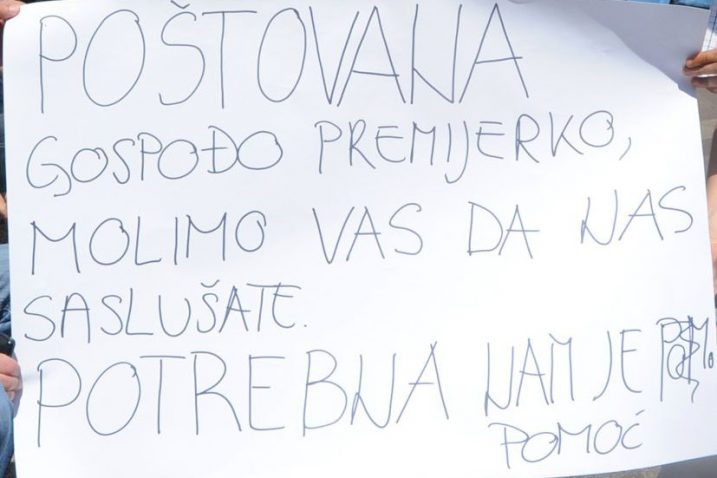 POŠTOVANA
GOSPOĐO PREMIJERKO,
MOLIMO VAS DA NAS
SASLUŠATE.
POTREBNA NAM JE
POMOĆ